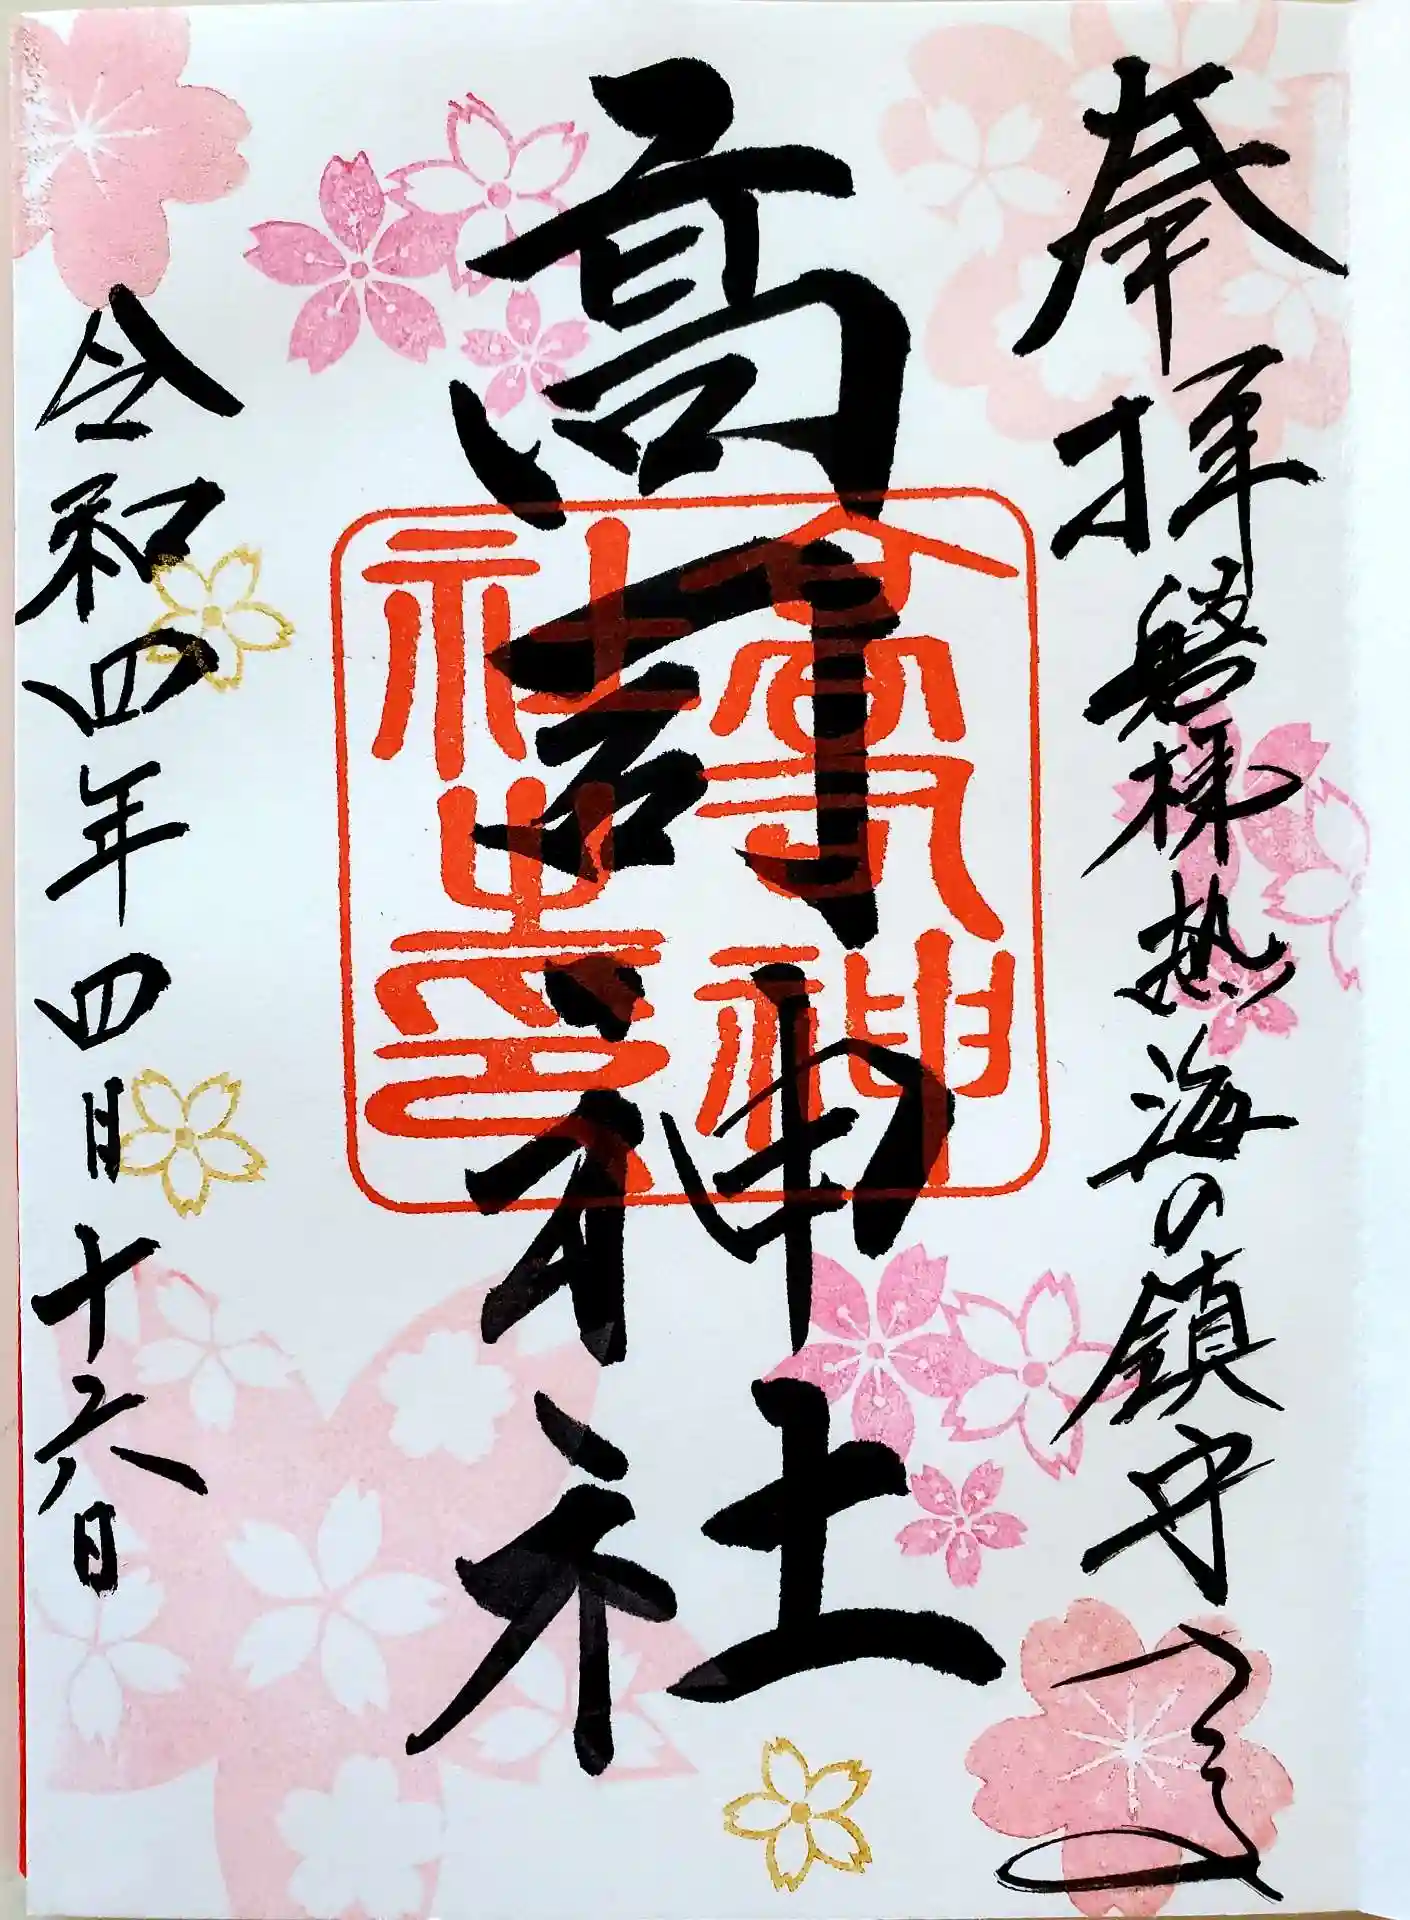 奉拝 磐梯熱海の鎮守
高司神社
高司神
社之印
令和四年四月十六日